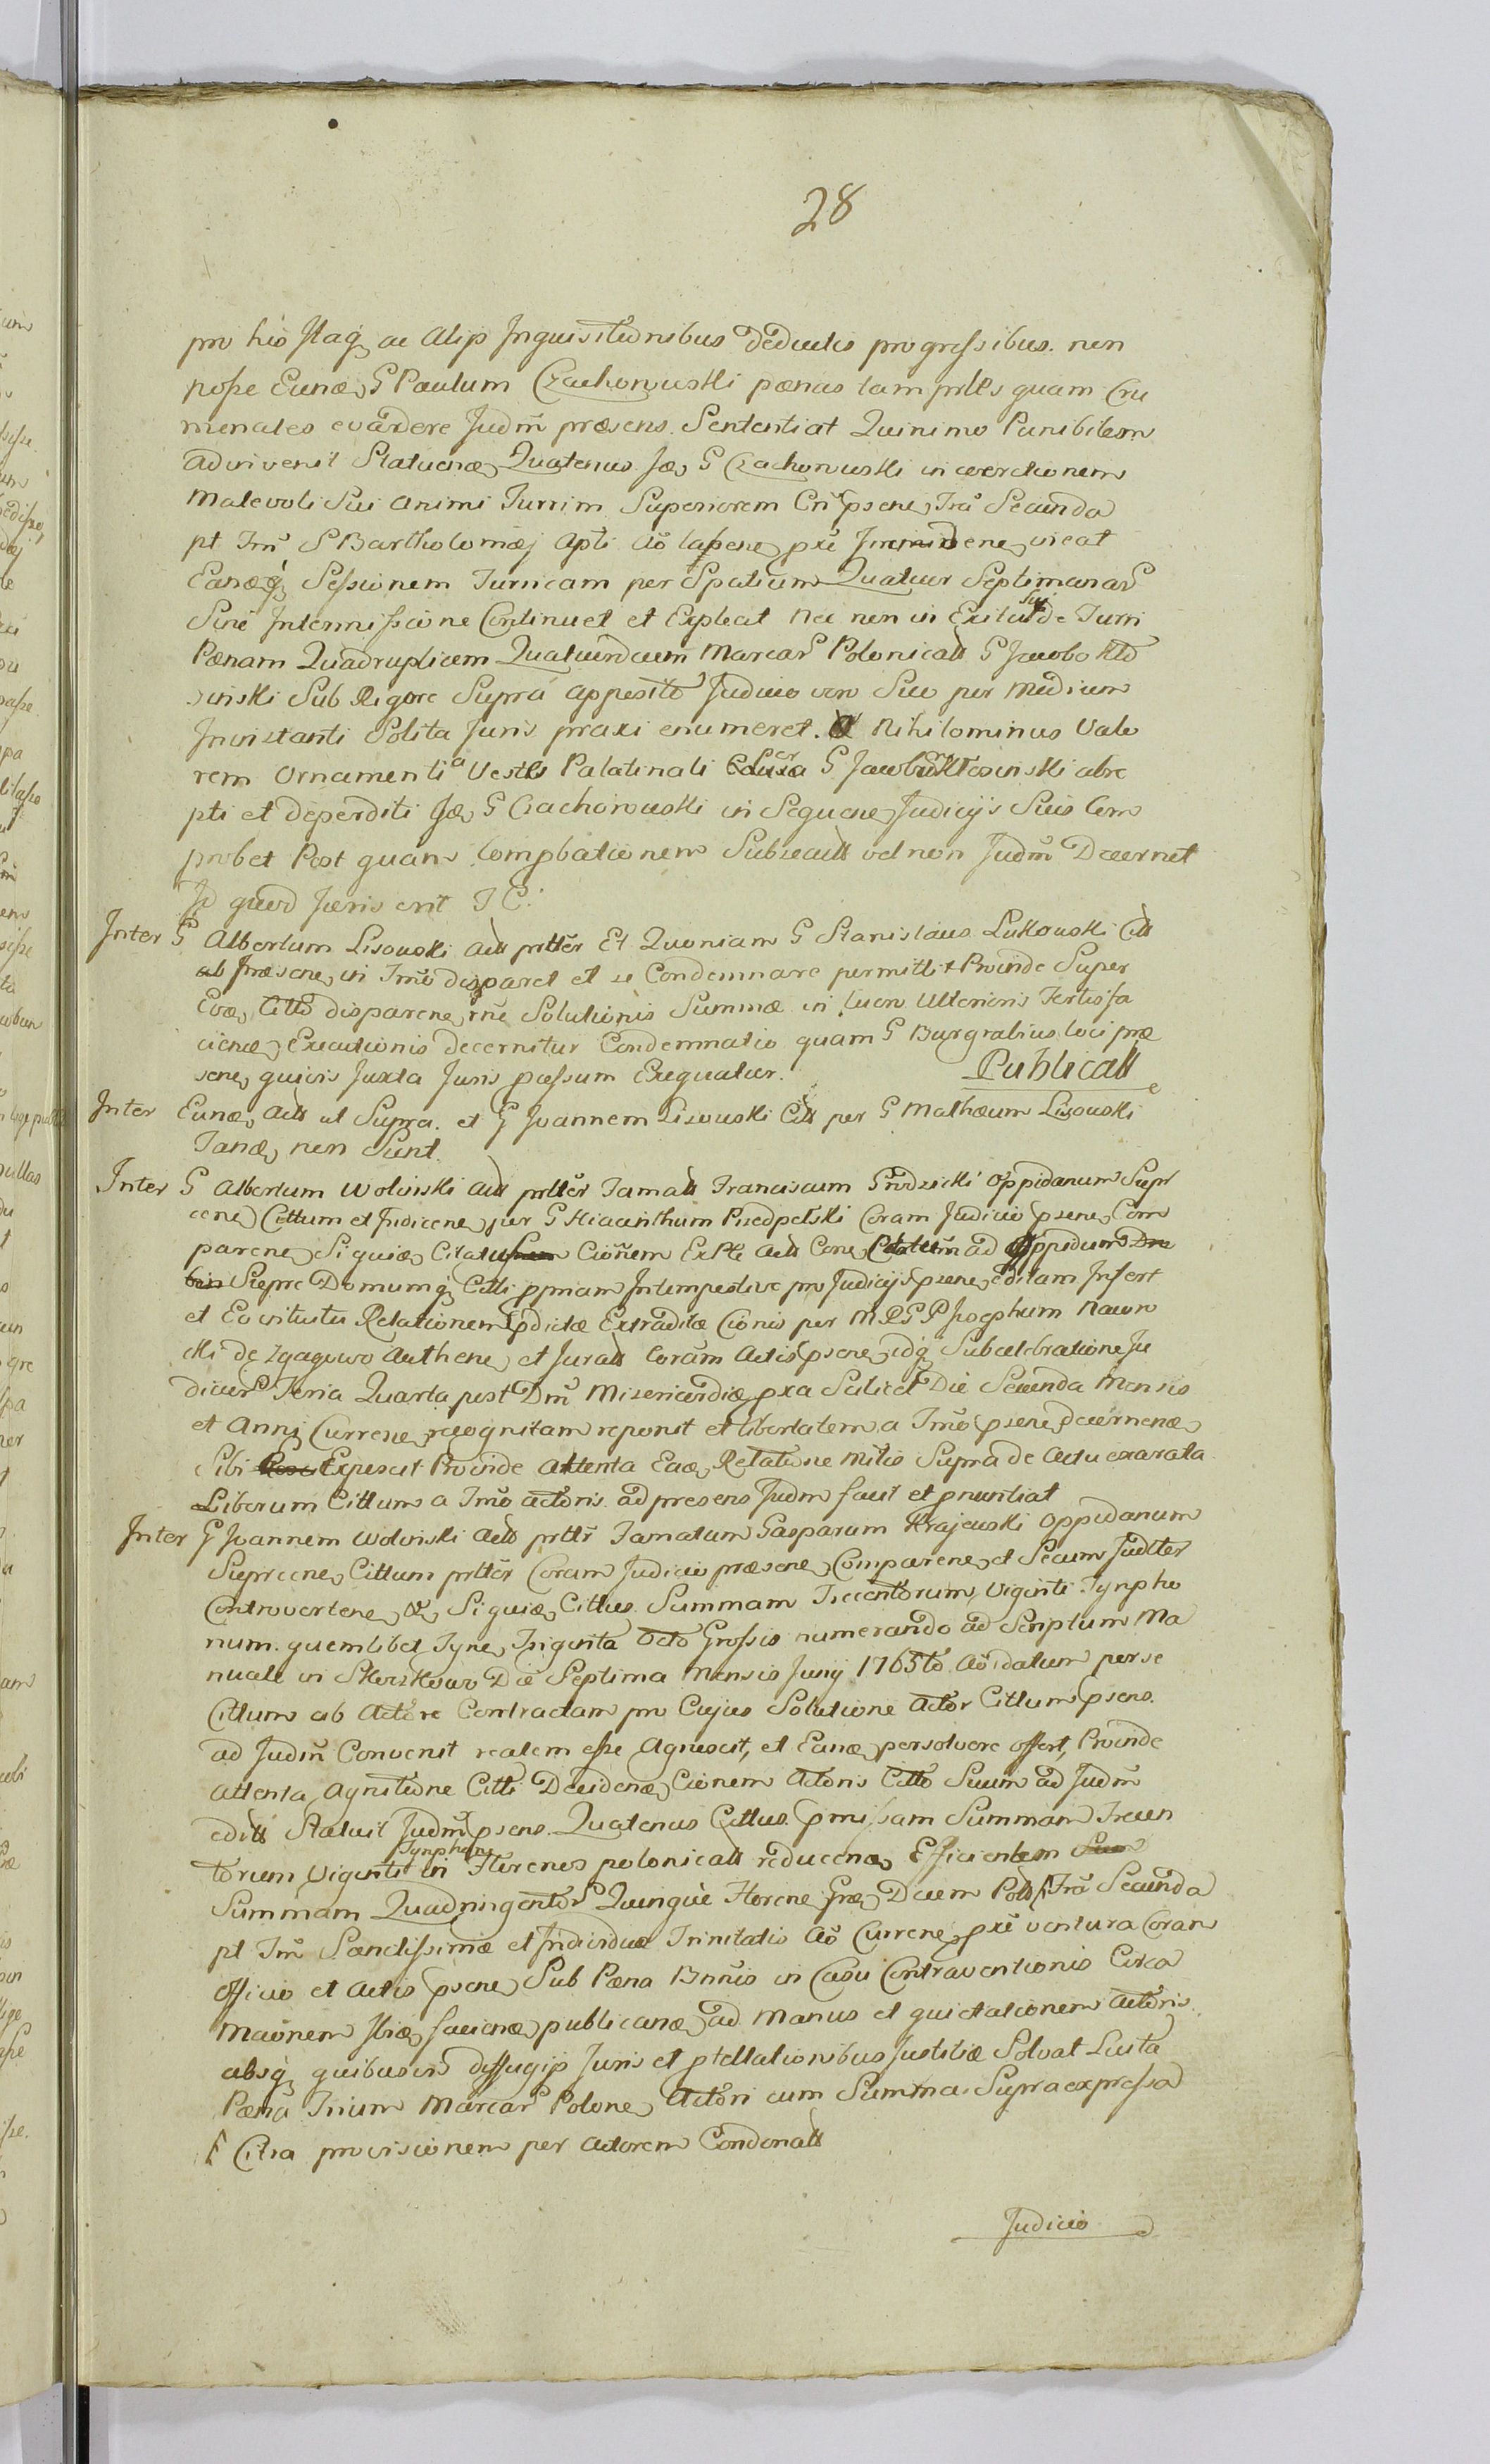 28
pro his Itaq ac Alijs Inquisitionibus Deductis progressibus. non
posse Eunde G Paulum Czachorowski pænas tam prles quam Cri
menales evadere Judm præsens Sententiat Quinimo Punibilem
adinvenit Statuens Quatenus G Czachorowski in coerctionem
Malevoli Sui animi Turrim Superiorem Cn psene Fra Secunda
pt Fm S Bartholomæj Apli Ao lapsene pxe ineat
Sessionem Turricam per Spatium Quatuor Septimanar
Sine Intermissione Continuet et Expleat nec non in Exitu Sui de Turri
Pænam Quadruplicem Quatuordecim Marcar Polonicall G Jacobo Kło
sinski Sub Rigore Supra apposito Judicio vero Suo per Medium
Invistanti Solita Juris praxi enumeret. Nihilominus Valo
rem Ornamenti a Veste Palatinali G Jacobum Kłosinski abre
pti et deperditi G Czachorowski in Sequene Judicijs Suis Com
probet Post quam Compbationem Subsecutt vel non Judm Decernet
Id quod Juris erit I C.
Inter G Albertum Lisowski Actt prtter Et Quoniam G Stanislaus Lukowski Citt
ab præsene in Tmo disparet et se Condemnare permittit Proinde Super
Citto disparene rne Solutionis Summæ in lucro Ulterioris Tertis fa
ciene Executionis decernitur Condemnatio quam G Burgrabius loci præ
sene quivis Juxta Juris passum Exequatur. Publicatt
Inter Eunde Actt ut Supra. et G Joannem Lisowski Citt per G Mathæum Lisowski
Tande non Sunt
Inter G Albertum Wolinski Actt prtter Famatt Franciscum Grodzicki Oppidanum Supr
cene Cittum et Judicene per G Hiacinthum Przedpelski Coram Judicio psene Com
parene Siquidem Citatus Cionem Ex Pte Actt Cone ad Oppidum
Siepre Domumq Citti ppriam Intempestive pro Judicijs psene editam Infert
et Eo intuitu Relationem pdictæ Extraditæ Cionis per M R G P Josephum Nawro
cki de Zgagowo Authene et Juratt Coram Actis psene idq Subcelebratione Ju
dicior Feria Quarta post Dm Misericordiæ pxa Scilicet Die Secunda Mensis
et Anni Currene recognitam reponit et libertatem a Tmo psene decernene
Sibi Exposcit Proinde attenta Eade Relatione Mitis Supra de Actu exarata
Liberum Cittum a Tmo actoris ad presens Judm facit et pnuntiat
Inter G Joannem Wolinski Actt prttr Famatum Gasparum Krajewski Oppidanum
Sieprecene Cittum prtter Coram Judicio præsene Comparene et Secum Judtter
Controvertene Siquidem Cittus Summam Trecentorum Viginti Tynpho
num. quemlibet Tyne Triginta Octo Grossis numerando ad Scriptum Ma
nuale in Die Septima Mensis Junij 1765to Ao datum per se
Cittum ab Actore Contractam pro Cujus Solutione Actor Cittum psens
ad Judm Convenit realem esse Agnoscit, et Eande persolvere offert, Proinde
attenta Agnitione Citti Decidene Cionem Actoris Citto Suum ad Judm
editt Statuit Judm psens Quatenus Cittus pmissam Summam Trecen
torum Viginti Tynphon in Florenos polonicatt reducene Efficientem
Summam Quadringentor Quinque Florene Gre Decem Polo Fra Secunda
pt Fm Sanctissimæ et Individuæ Trinitatis Ao Currene pxe ventura Coram
officio et Actis psene Sub Pæna Bnnis in Casu Contraventionis Circa
Maonem faciene publicane ad Manus et quietationem Actoris
absq quibusvis diffugijs Juris et ptellationibus Justitiæ Solvat Luita
Pæna Trium Marcar Polone Actori cum Summa Supra expressa
Citra provisionem per Actorem Condonatt
Judicio